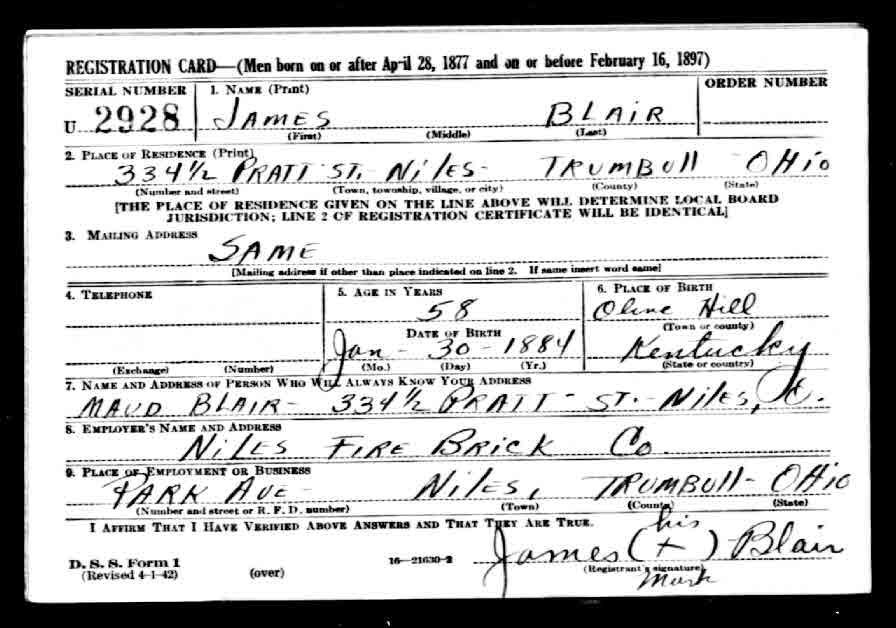 REGISTRATION CARD—(Men born on or after April 28, 1877 and on or before February 16, 1897)
SERIAL NUMBER 1. NAME (Print) ORDER NUMBER
U 2928 JAMES BLAIR
(First) (Middle) (Last)
2. PLACE OF RESIDENCE (Print)
334 1/2 PRATT ST. NILES - TRUMBULL OHIO
(Number and street) (Town, township, village, or city) (County) (State)
[THE PLACE OF RESIDENCE GIVEN ON THE LINE ABOVE WILL DETERMINE LOCAL BOARD
JURISDICTION; LINE 2 OF REGISTRATION CERTIFICATE WILL BE IDENTICAL]
3. MAILING ADDRESS
SAME
[Mailing address if other than place indicated on line 2. If same insert word same]
4. TELEPHONE 5. AGE IN YEARS 6. PLACE OF BIRTH
58 Olive Hill
DATE OF BIRTH (Town or county)
Jan - 30 - 1884 Kentucky
(Exchange) (Number) (Mo.) (Day) (Yr.) (State or country)
7. NAME AND ADDRESS OF PERSON WHO WILL ALWAYS KNOW YOUR ADDRESS
MAUD BLAIR - 334 1/2 PRATT - ST. - NILES, O.
8. EMPLOYER'S NAME AND ADDRESS
NILES FIRE BRICK CO
9. PLACE OF EMPLOYMENT OR BUSINESS
PARK AVE - NILES, TRUMBULL - OHIO
(Number and street or R. F. D. number) (Town) (County) (State)
I AFFIRM THAT I HAVE VERIFIED ABOVE ANSWERS AND THAT THEY ARE TRUE.
his
James (+) Blair
D. S. S. Form 1 16—21630-2 (Registrant's signature)
(Revised 4-1-42) (over) Mark